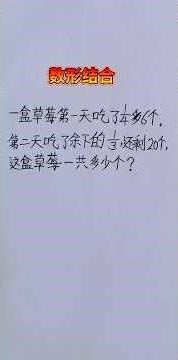 数形结合
一盒草莓第一天吃了1/4多6个,
第二天吃了余下的1/3还剩20个,
这盒草莓一共多少个?